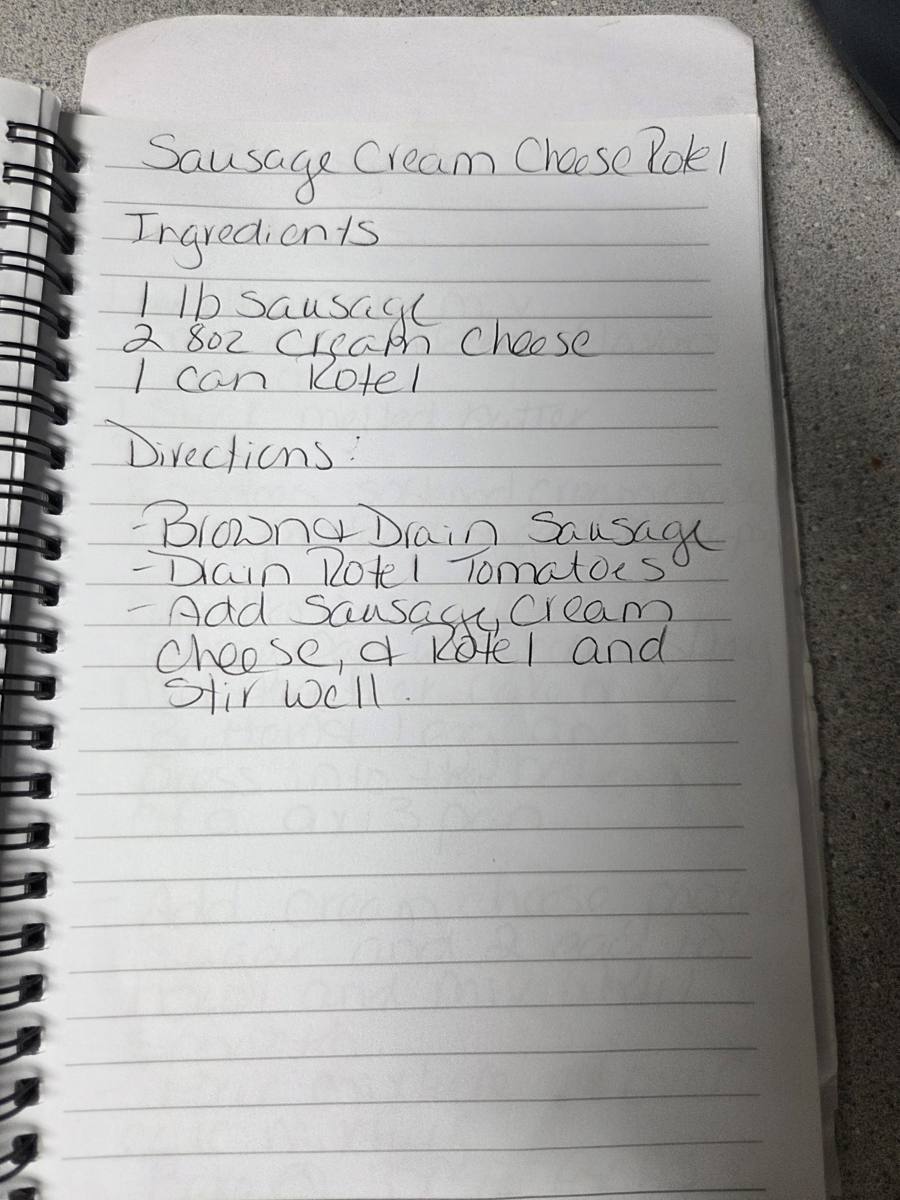 Sausage Cream Cheese Rotel
Ingredients
1 lb sausage
2 8oz cream cheese
1 can Rotel
Directions:
- Brown & Drain Sausage
- Drain Rotel Tomatoes
- Add Sausage, Cream
Cheese, & Rotel and
Stir Well.